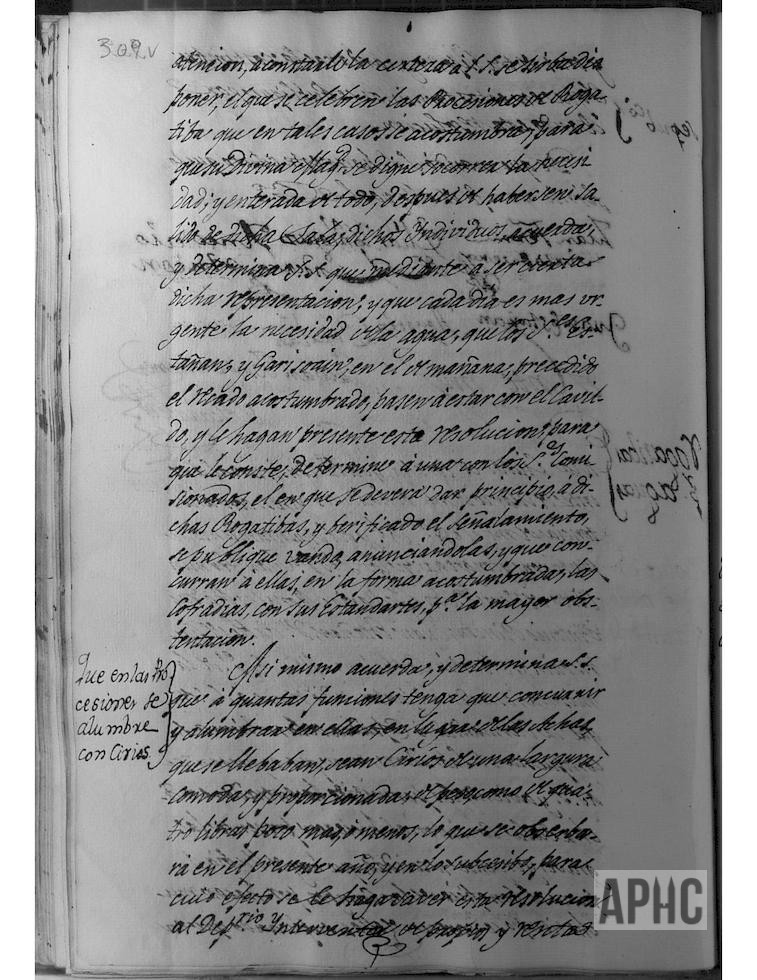 309.v
atencion, a constarle la certeza a S.S. se sirba dis
poner, el que se celebren las Procesiones de Roga
tiba que en tales casos se acostumbra, para
que su Divina Mag.d se digne socorrer la necesi
dad; y enterada de todo, despues de haberse sa
lido de dicha Sala, dichos Individuos, acuerda,
y determina S.S. que mediante a ser cierta
dicha representacion, y que cada dia es mas ur-
gente la necesidad de la agua, que los S.res Es-
tañan, y Garisoain, en el de mañana, precedido
el recado acostumbrado, pasen a estar con el Cavil-
do, y le hagan presente esta resolucion, para
que le conste, determine a una con los S.res Comi-
sionados, el en que se devera dar principio, a di-
chas Rogatibas, y berificado el señalamiento,
se publique vando, anunciandolas, y que con-
curran a ellas, en la forma acostumbrada, las
Cofradias, con sus Estandartes, p.a la mayor obs-
tentacion.
Que en las Pro
cesiones se
alumbre
con Cirios.
Asi mismo acuerda, y determina S.S.
que a quantas funciones tenga que concurrir
y alumbrar en ellas, en lugar de las Achas,
que se llebaban, sean Cirios de una largura
comoda, y proporcionada, de peso como de qua-
tro libras poco mas, o menos, lo que se obserba-
ra en el presente año, y en lo subcesibo, para
cuio efecto se le haga saver esta resolucion
al Dep.rio y Interventor de propios, y rentas
APHC